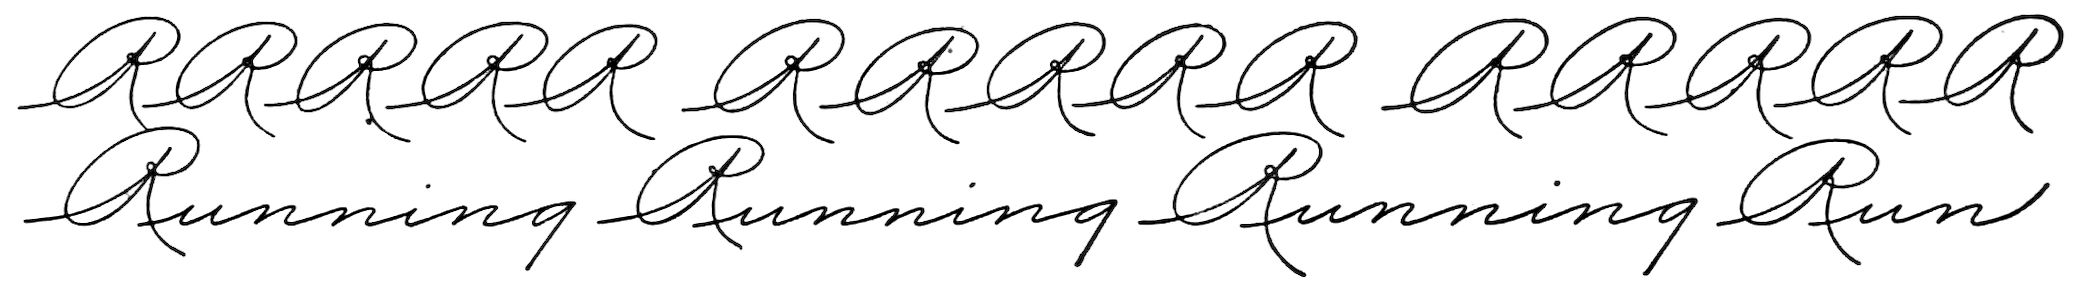 RRRRR RRRRR RRRRR
Running Running Running Run